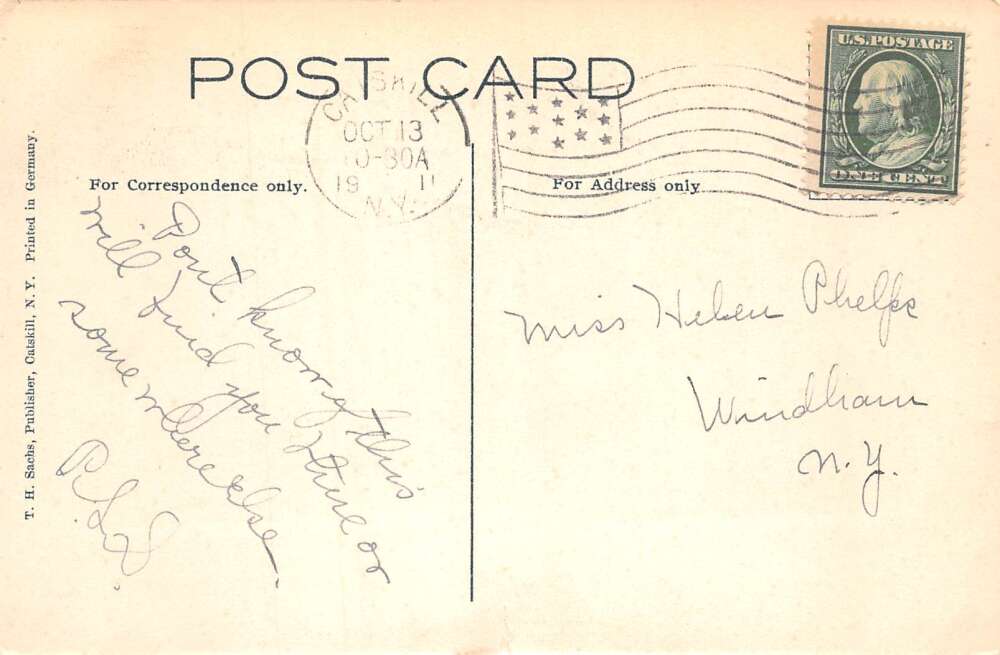 POST CARD
U.S. POSTAGE
ONE CENT
CATSKILL
OCT 13
10-30A
19 11
N.Y.
For Correspondence only.
For Address only
T. H. Sachs, Publisher, Catskill, N. Y. Printed in Germany.
Don't know if this
will find you there or
somewhere else.
Miss Helen Phelps
Windham
N.Y.